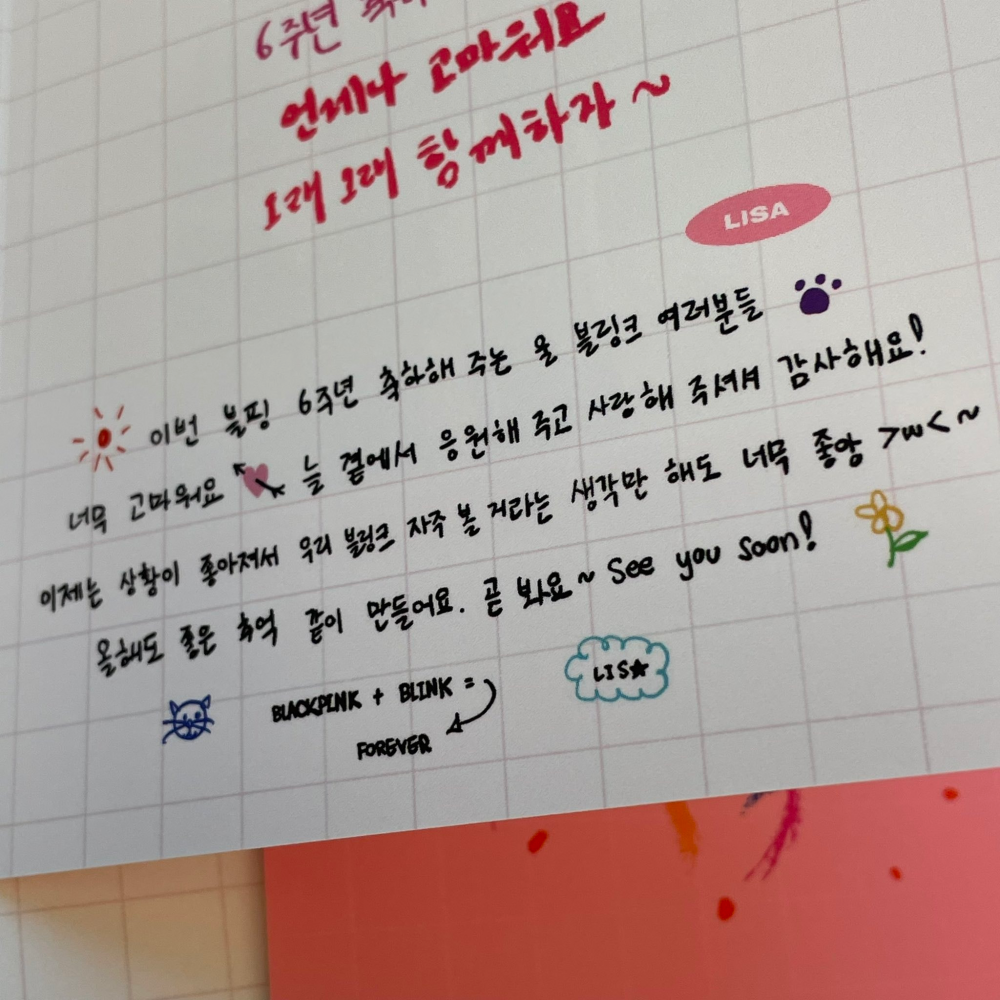 6주년 축하
언제나 고마워요
오래오래 함께하자~
LISA
이번 블핑 6주년 축하해 주는 울 블링크 여러분들
너무 고마워요 늘 곁에서 응원해 주고 사랑해 주셔서 감사해요!
이제는 상황이 좋아져서 우리 블링크 자주 볼 거라는 생각만 해도 너무 좋앙 >w<~
올해도 좋은 추억 같이 만들어요. 곧 봐요~ See you soon!
BLACKPINK + BLINK =
FOREVER
LIS★